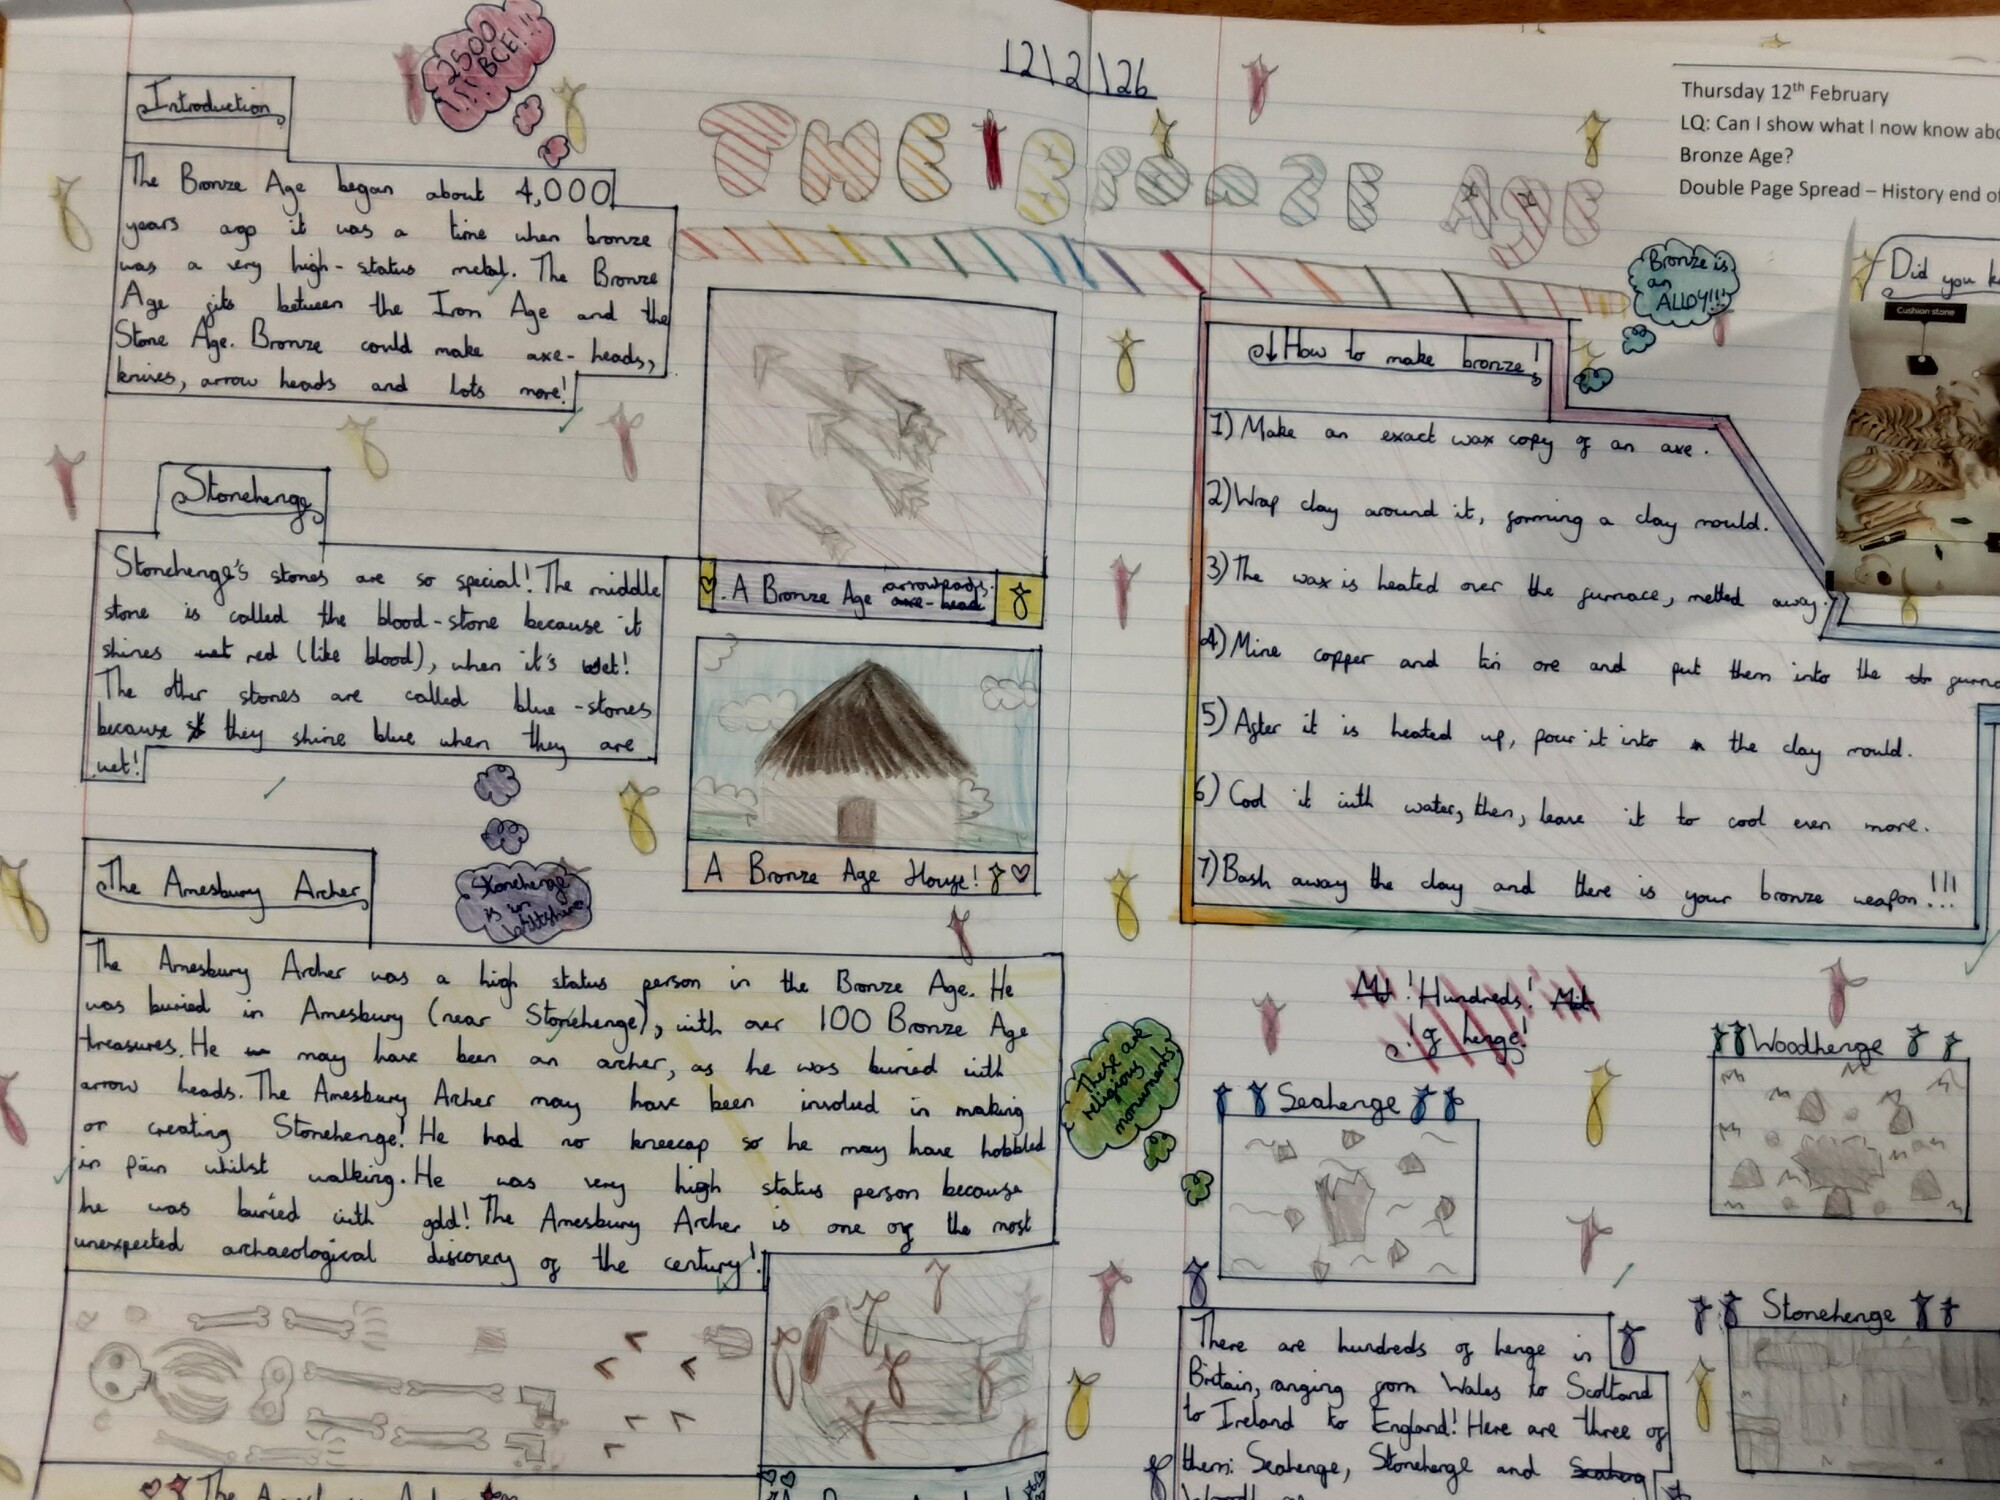 2500
BCE!!!
!!!
12\2\26
THE BronzE AgE
Thursday 12th February
LQ: Can I show what I now know abo
Bronze Age?
Double Page Spread – History end of
Introduction
The Bronze Age began about 4,000
years ago it was a time when bronze
was a very high-status metal. The Bronze
Age fits between the Iron Age and the
Stone Age. Bronze could make axe-heads,
knives, arrow heads and lots more!
Stonehenge
Stonehenge's stones are so special! The middle
stone is called the blood-stone because it
shines wet red (like blood), when it's wet!
The other stones are called blue-stones
because they shine blue when they are
wet!
Stonehenge
is in
Wiltshire
The Amesbury Archer
The Amesbury Archer was a high status person in the Bronze Age. He
was buried in Amesbury (near Stonehenge), with over 100 Bronze Age
treasures. He may have been an archer, as he was buried with
arrow heads. The Amesbury Archer may have been involved in making
or creating Stonehenge! He had no kneecap so he may have hobbled
in pain whilst walking. He was very high status person because
he was buried with gold! The Amesbury Archer is one of the most
unexpected archaeological discovery of the century!
The Amesbury Archer
A Bronze Age arrowheads.
axe-head
A Bronze Age House!
Bronze is
an
ALLOY!!!
Did you k
Cushion stone
How to make bronze!
1) Make an exact wax copy of an axe.
2) Wrap clay around it, forming a clay mould.
3) The wax is heated over the furnace, melted away.
4) Mine copper and tin ore and put them into the furna
5) After it is heated up, pour it into the clay mould.
6) Cool it with water, then, leave it to cool even more.
7) Bash away the clay and there is your bronze weapon!!!
!Hundreds!
!of henge!
These are
religious
monuments
Seahenge
Woodhenge
Stonehenge
There are hundreds of henge in
Britain, ranging from Wales to Scotland
to Ireland to England! Here are three of
them: Seahenge, Stonehenge and Seaheng